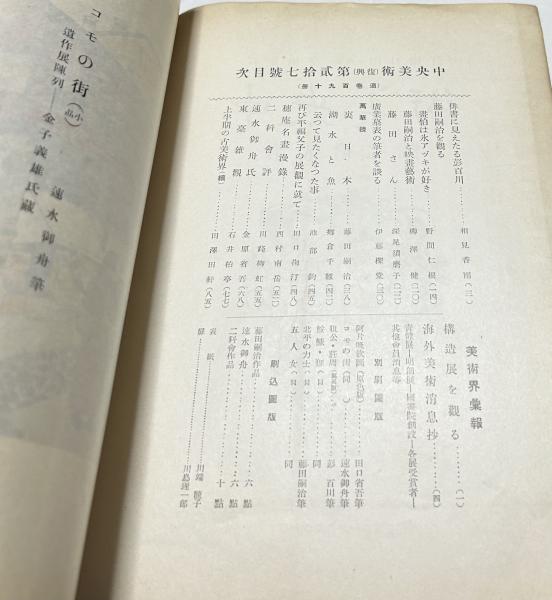 コモの街 (小品) 速水御舟筆
遺作展陳列―金子義雄氏蔵
中央美術(復興)第貳拾七號目次
(通巻百九十冊)
俳書に見えたる彭百川 相見香雨(三)
藤田嗣治を觀る
畫怕は氷アヅキが好き 野間仁根(一四)
藤田嗣治と映畫藝術 柳澤健(二〇)
藤田さん 深尾須磨子(二二)
廣業墓表の筆者を談る 伊藤櫟堂(三〇)
萬華鏡
裏日本 藤田嗣治(三八)
湖水と魚 郷倉千靱(四二)
云つて見たくなつた事 池部鈞(四五)
再び不福父子の展觀に就て 田口掬汀(四八)
穗庵名畫漫錄 西村南岳(五二)
二科會評 川路柳虹(五五)
速水御舟氏 金原省吾(六八)
東臺雄觀 石井柏亭(七七)
上半期の古美術界(續) 田澤田軒(八五)
美術界彙報
構造展を觀る (一)
海外美術消息抄 (四)
其他會員消息等
別刷圖版
阿片喫飲圖(原色版) 田口省吾筆
コモの街(同) 速水御舟筆
彭百川筆
同
北平の力士 藤田嗣治筆
五人女 同
刷込圖版
藤田嗣治作品 六點
速水御舟 六點
二科會作品 十點
表紙 川端龍子
扉 川島理一郎